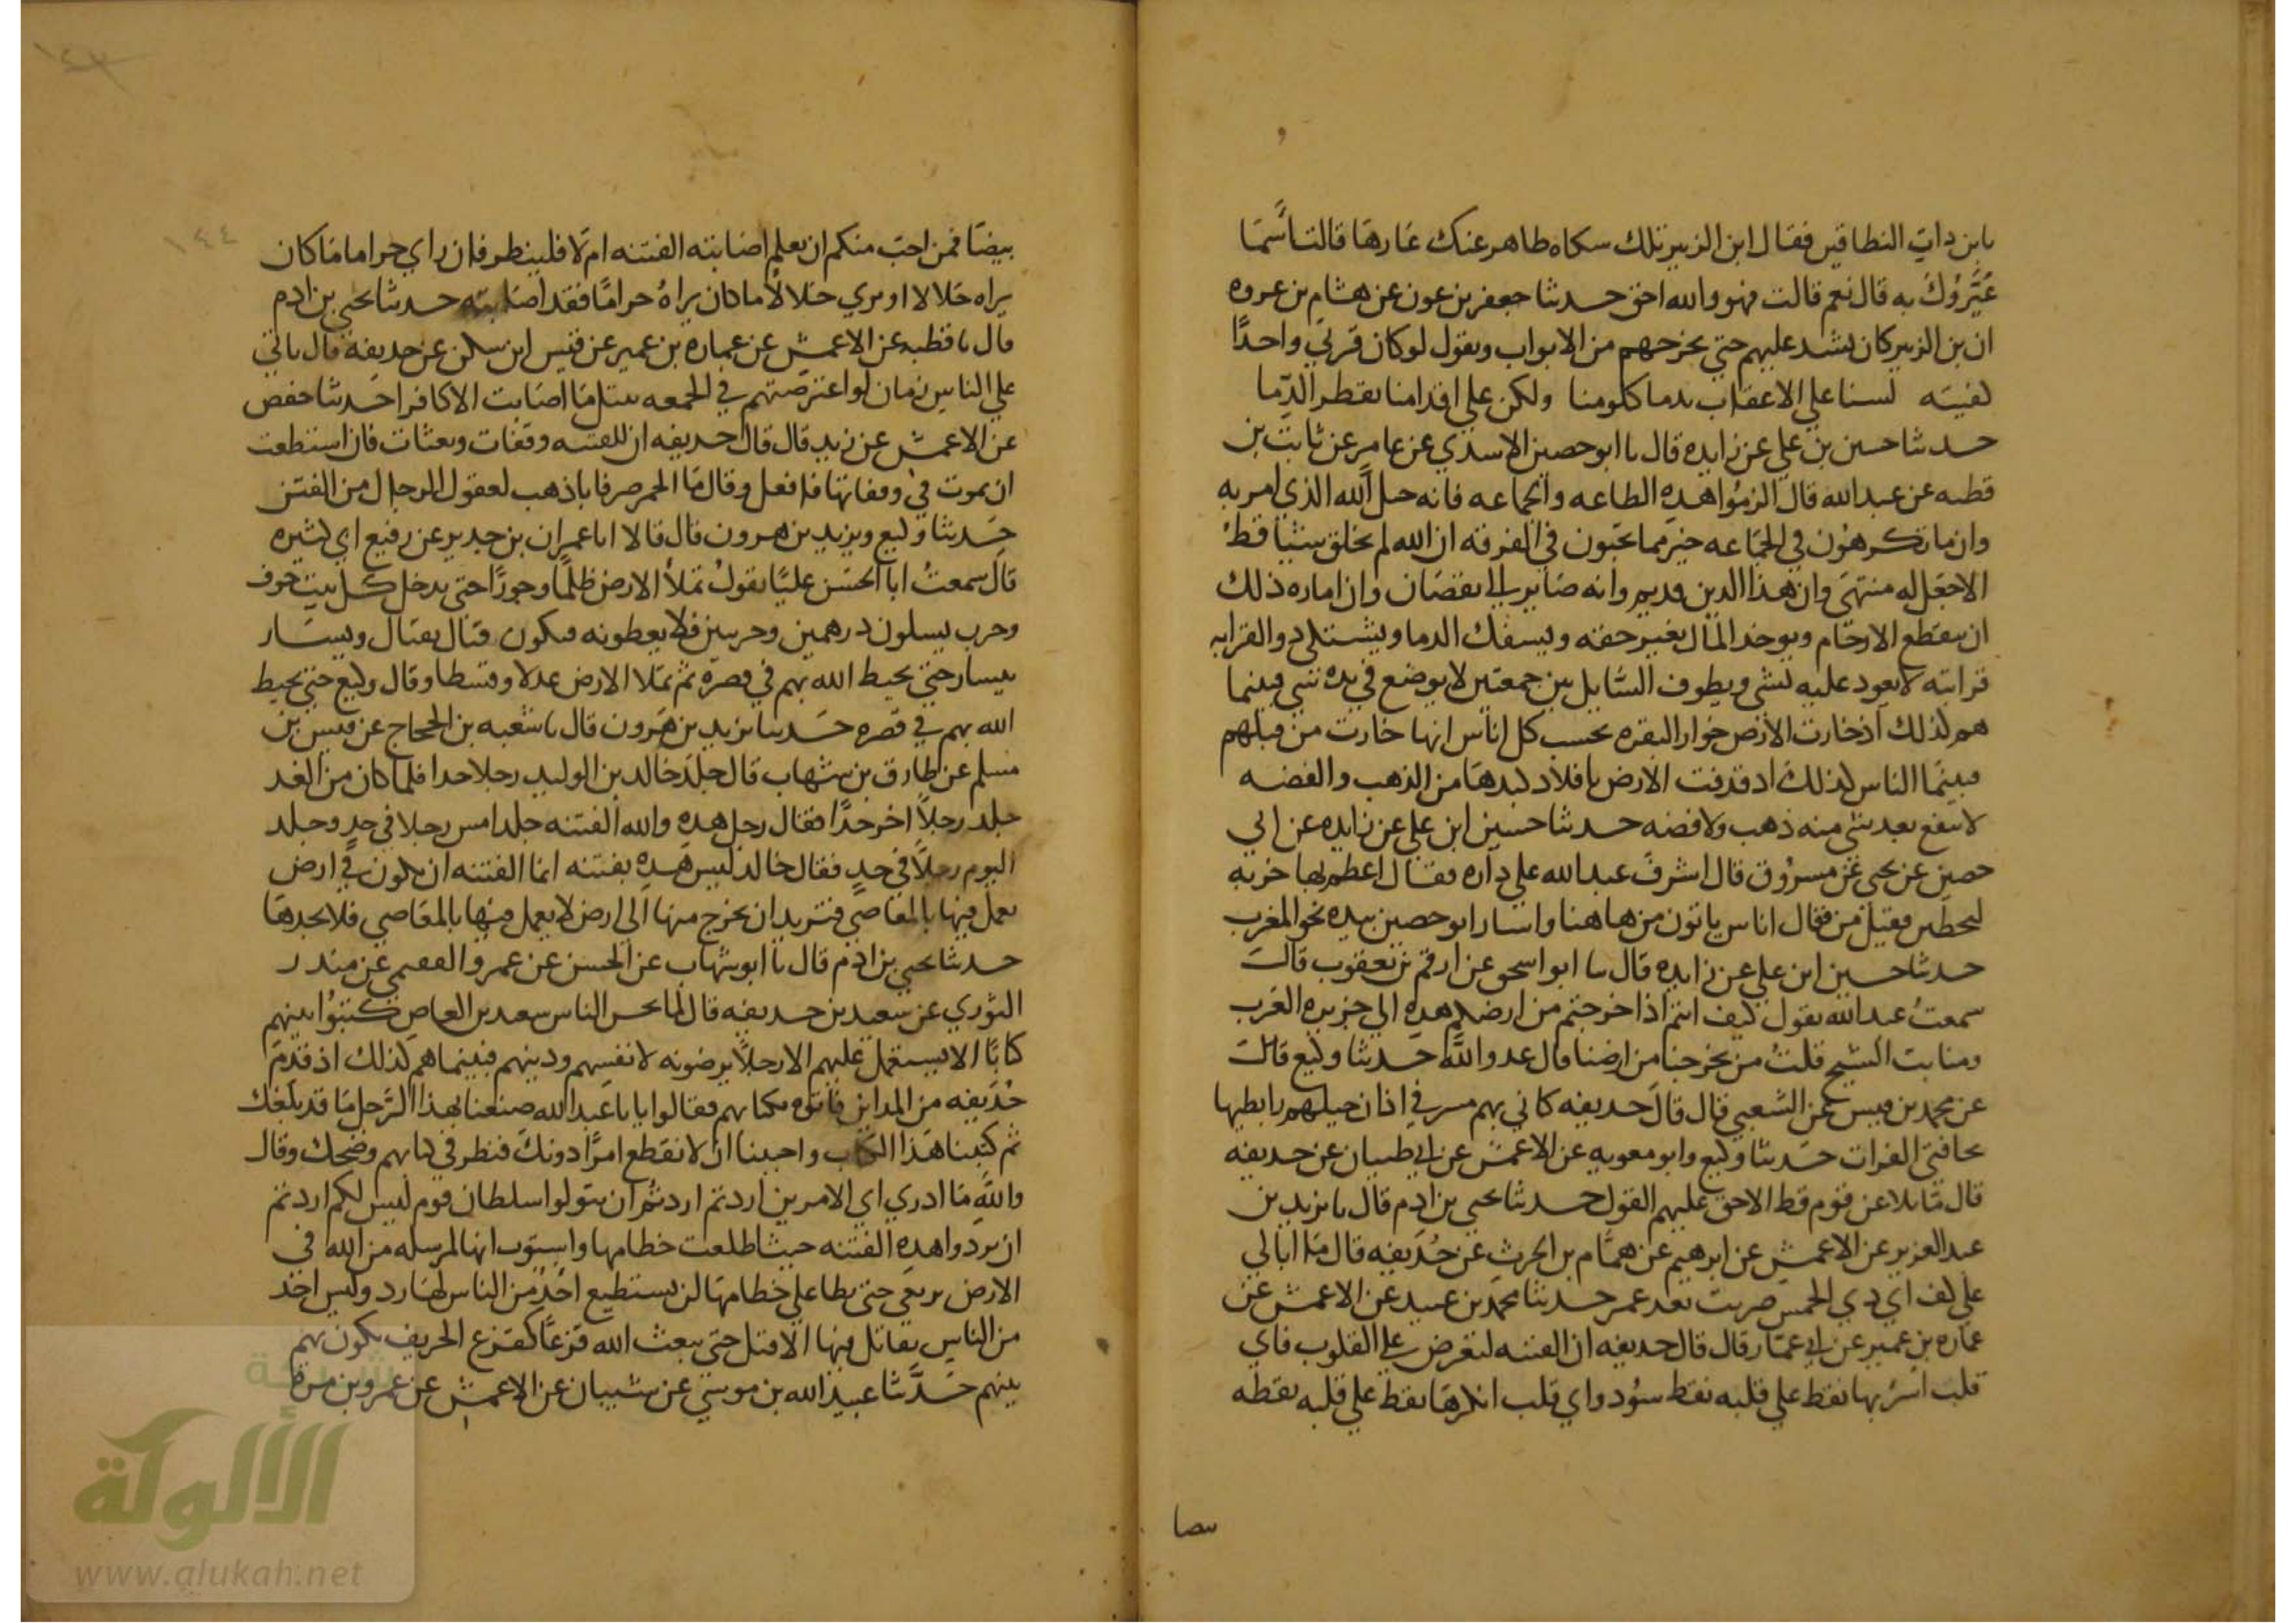 يابن ذات النطاقين فقال ابن الزبير تلك شكاه ظاهر عنك عارها قالت أسما
عَيَّرُوك به قال نعم قالت فهو والله احق حدثنا جعفر بن عون عن هشام بن عروه
ان بن الزبير كان يشد عليهم حتي يخرجهم من الابواب ويقول لو كان قرني واحدًا
كفيته لسنا علي الاعقاب يدما كلومنا ولكن علي اقدامنا يقطر الدما
حدثنا حسين بن علي عن زايده قال نا ابو حصين الاسدي عن عامر عن ثابت بن
قطبه عن عبدالله قال الزموا هذه الطاعه والجماعه فانه حبل الله الذي امر به
وان ما تكرهون في الجماعه خير مما تحبون في الفرقه ان الله لم يخلق شيئا قط
الا جعل له منتهي وان هذا الدين قديم وانه صاير الي نقصان وان اماره ذلك
ان يقطع الارحام ويوخذ المال بغير حقه ويسفك الدما ويشتكي ذو القرابه
قرابته لا يعود عليه بشي ويطوف السايل بين جمعتين لا يوضع في يده شي فبينما
هم كذلك اذ خارت الارض خوار البقره يحسب كل اناس انها خارت من قبلهم
فبينما الناس كذلك اذ قذفت الارض بافلاذ كبدها من الذهب والفضه
لا ينفع بعد شي منه ذهب ولا فضه حدثنا حسين ابن علي عن زايده عن ابي
حصين عن يحي عن مسروق قال اشرف عبدالله علي داره فقال اعظم بها خربه
ليحطن فقيل من فقال اناس ياتون من هاهنا واشار ابو حصين بيده نحو المغرب
حدثنا حسين ابن علي عن زايده قال نا ابو اسحق عن ارقم بن يعقوب قال
سمعت عبدالله يقول كيف انتم اذا خرجتم من ارضكم هذه الي جزيره العرب
ومنابت الشيح قلت من يخرجنا من ارضنا قال عدو الله حدثنا وكيع قال
عن محمد بن قيس عن الشعبي قال قال حذيفه كاني بهم مسر في اذان خيلهم رابطيها
بحافتي الفرات حدثنا وكيع وابو معويه عن الاعمش عن ابي ظبيان عن حذيفه
قال ما تلاعن قوم قط الا حق عليهم القول حدثنا يحي بن ادم قال نا يزيد بن
عبدالعزيز عن الاعمش عن ابرهيم عن همام بن الحرث عن حذيفه قال ما ابالي
علي كف اي يدي الخمس ضربت بعد عمر حدثنا محمد بن عبيد عن الاعمش عن
عماره بن عمير عن ابي عمار قال قال حذيفه ان الفتنه لتعرض علي القلوب فاي
قلب اشربها نقط علي قلبه نقط سود واي قلب انكرها نقط علي قلبه نقطه
بيضا
بيضا فمن احب منكم ان يعلم اصابته الفتنه ام لا فلينظر فان راي حراما ما كان
يراه حلالا او يري حلالا ما كان يراه حراما فقد اصابته حدثنا يحي بن ادم
قال نا قطبه عن الاعمش عن عماره بن عمير عن قيس ابن سكن عن حذيفه قال ياتي
علي الناس زمان لو اعترضتهم في الجمعه بنبل ما اصابت الا كافرا حدثنا حفص
عن الاعمش عن زيد قال قال حذيفه ان للفتنه وقفات وبعثات فان استطعت
ان تموت في وقفاتها فافعل وقال ما الخمر صرفا باذهب لعقول الرجال من الفتن
حدثنا وكيع ويزيد بن هرون قال قالا انا عمران بن حدير عن رفيع ابي كثيره
قال سمعت ابا الحسن عليًا يقول تملأ الارض ظلما وجورًا حتي يدخل كل بيت خوف
وحرب يسلون درهمين وحرسين فلا يعطونه فيكون قتال بقتال ويسار
بيسار حتي يحيط الله بهم في قصره ثم تملا الارض عدلا وقسطا وقال وكيع حتي يحيط
الله بهم في قصره حدثنا يزيد بن هرون قال نا شعبه بن الحجاج عن قيس بن
مسلم عن طارق بن شهاب قال جلد خالد بن الوليد رجلا حدا فلما كان من الغد
جلد رجلاً اخر حدًا فقال رجل هذه والله الفتنه جلد امس رجلا في حد وجلد
اليوم رجلاً في حد فقال خالد ليس هذه بفتنه انما الفتنه ان يكون في ارض
يعمل فيها بالمعاصي فتريد ان تخرج منها الي ارض لا يعمل فيها بالمعاصي فلا تجدها
حدثنا يحي بن ادم قال نا ابو شهاب عن الحسن عن عمرو الفقيمي عن منذر
الثوري عن سعيد بن حذيفه قال لما تحسر الناس سعيد بن العاص كتبوا بينهم
كتابًا الا يستعمل عليهم الا رجلًا يرضونه لانفسهم ودينهم فبينما هم كذلك اذ قدم
حذيفه من المداين فاتوه بكتابهم فقالوا يا با عبدالله صنعنا بهذا الرجل ما قد بلغك
ثم كتبنا هذا الكتاب واحببنا ان لا نقطع امرًا دونك فنظر في كتابهم وضحك وقال
والله ما ادري اي الامرين اردتم اردتم ان تتولوا سلطان قوم ليس لكم اردتم
ان تردوا هذه الفتنه حيث اطلعت خطامها واستوت انها لمرسله من الله في
الارض ترتعي حتي تطا علي خطامها لن يستطيع احد من الناس لها رد وليس احد
من الناس يقاتل فيها الا قتل حتي يبعث الله قزعًا كقزع الخريف يكون بهم
بينهم حدثنا عبيد الله بن موسي عن شيبان عن الاعمش عن عمرو بن مره
١٤٤
١٤٣
شبكة
الألوكة
www.alukah.net